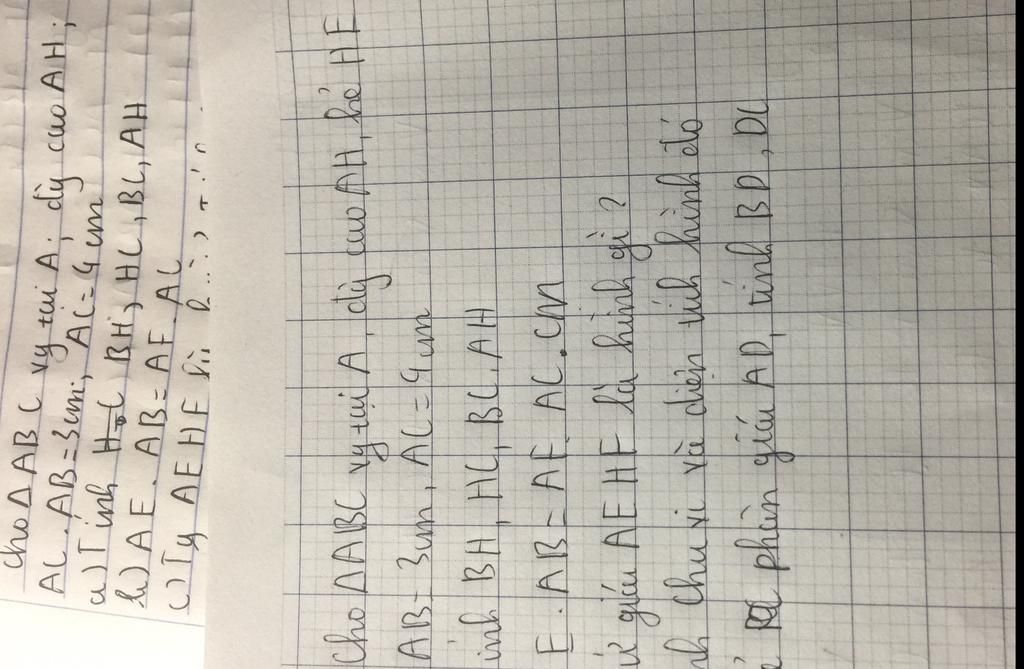 cho Δ ABC vg tại A; đg cao AH;
AC. AB=3cm; AC=4cm
a) Tính BH, HC, BC, AH
b) AE. AB = AF. AC
c) Tg AEHF là
Cho ΔABC vg tại A, đg cao AH, kẻ HE
AB= 3cm, AC=4cm
ính BH, HC, BC, AH
E. AB = AF. AC. CM
ứ giác AEHF là hình gì?
nh chu vi và diện tích hình đó
phân giác AD, tính BD, DC